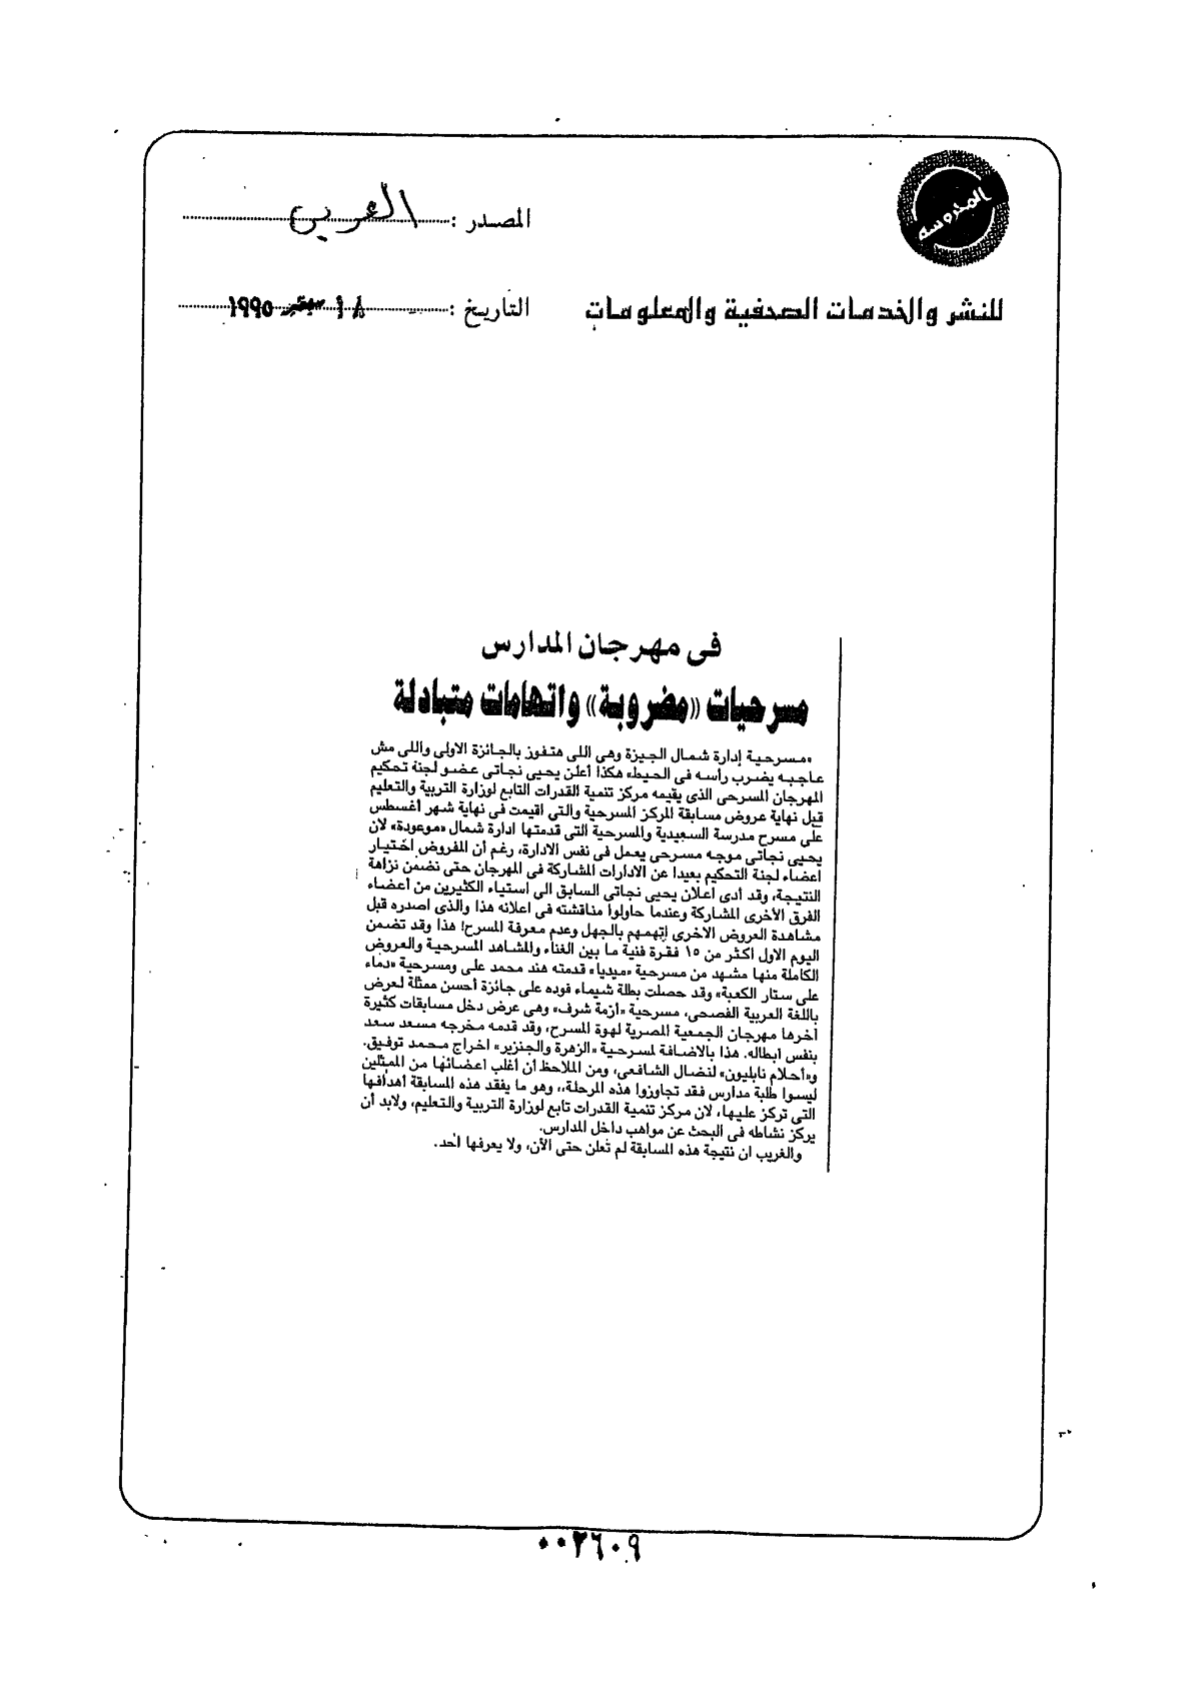 المحروسة
المصدر : العربي
للنشر والخدمات الصحفية والمعلومات
التاريخ : ١٨ سبتمبر ١٩٩٥
فى مهرجان المدارس
مسرحيات «مضروبة» واتهامات متبادلة
«مسرحية إدارة شمال الجيزة وهى اللى هتفوز بالجائزة الاولى واللى مش
عاجبه يضرب راسه فى الحيط» هكذا أعلن يحيى نجاتى عضو لجنة تحكيم
المهرجان المسرحى الذى يقيمه مركز تنمية القدرات التابع لوزارة التربية والتعليم
قبل نهاية عروض مسابقة المركز المسرحية والتى اقيمت فى نهاية شهر أغسطس
على مسرح مدرسة السعيدية والمسرحية التى قدمتها ادارة شمال «موعودة» لان
يحيى نجاتى موجه مسرحى يعمل فى نفس الادارة، رغم أن المفروض اختيار
أعضاء لجنة التحكيم بعيدا عن الادارات المشاركة فى المهرجان حتى نضمن نزاهة
النتيجة، وقد أدى اعلان يحيى نجاتى السابق الى استياء الكثيرين من أعضاء
الفرق الأخرى المشاركة وعندما حاولوا مناقشته فى اعلانه هذا والذى اصدره قبل
مشاهدة العروض الاخرى إتهمهم بالجهل وعدم معرفة المسرح! هذا وقد تضمن
اليوم الاول اكثر من ١٥ فقرة فنية ما بين الغناء والمشاهد المسرحية والعروض
الكاملة منها مشهد من مسرحية «ميديا» قدمته هند محمد على ومسرحية «دماء
على ستار الكعبة» وقد حصلت بطلة شيماء فوده على جائزة أحسن ممثلة لعرض
باللغة العربية الفصحى، مسرحية «أزمة شرف» وهى عرض دخل مسابقات كثيرة
آخرها مهرجان الجمعية المصرية لهوة المسرح، وقد قدمه مخرجه مسعد سعد
بنفس ابطاله. هذا بالاضافة لمسرحية «الزهرة والجنزير» اخراج محمد توفيق.
و«أحلام نابليون» لنضال الشافعى، ومن الملاحظ أن أغلب اعضائها من الممثلين
ليسوا طلبة مدارس فقد تجاوزوا هذه المرحلة،، وهو ما يفقد هذه المسابقة أهدافها
التى تركز عليها، لان مركز تنمية القدرات تابع لوزارة التربية والتعليم، ولابد أن
يركز نشاطه فى البحث عن مواهب داخل المدارس.
والغريب ان نتيجة هذه المسابقة لم تعلن حتى الأن، ولا يعرفها أحد.
٠٠٢٦٠٩